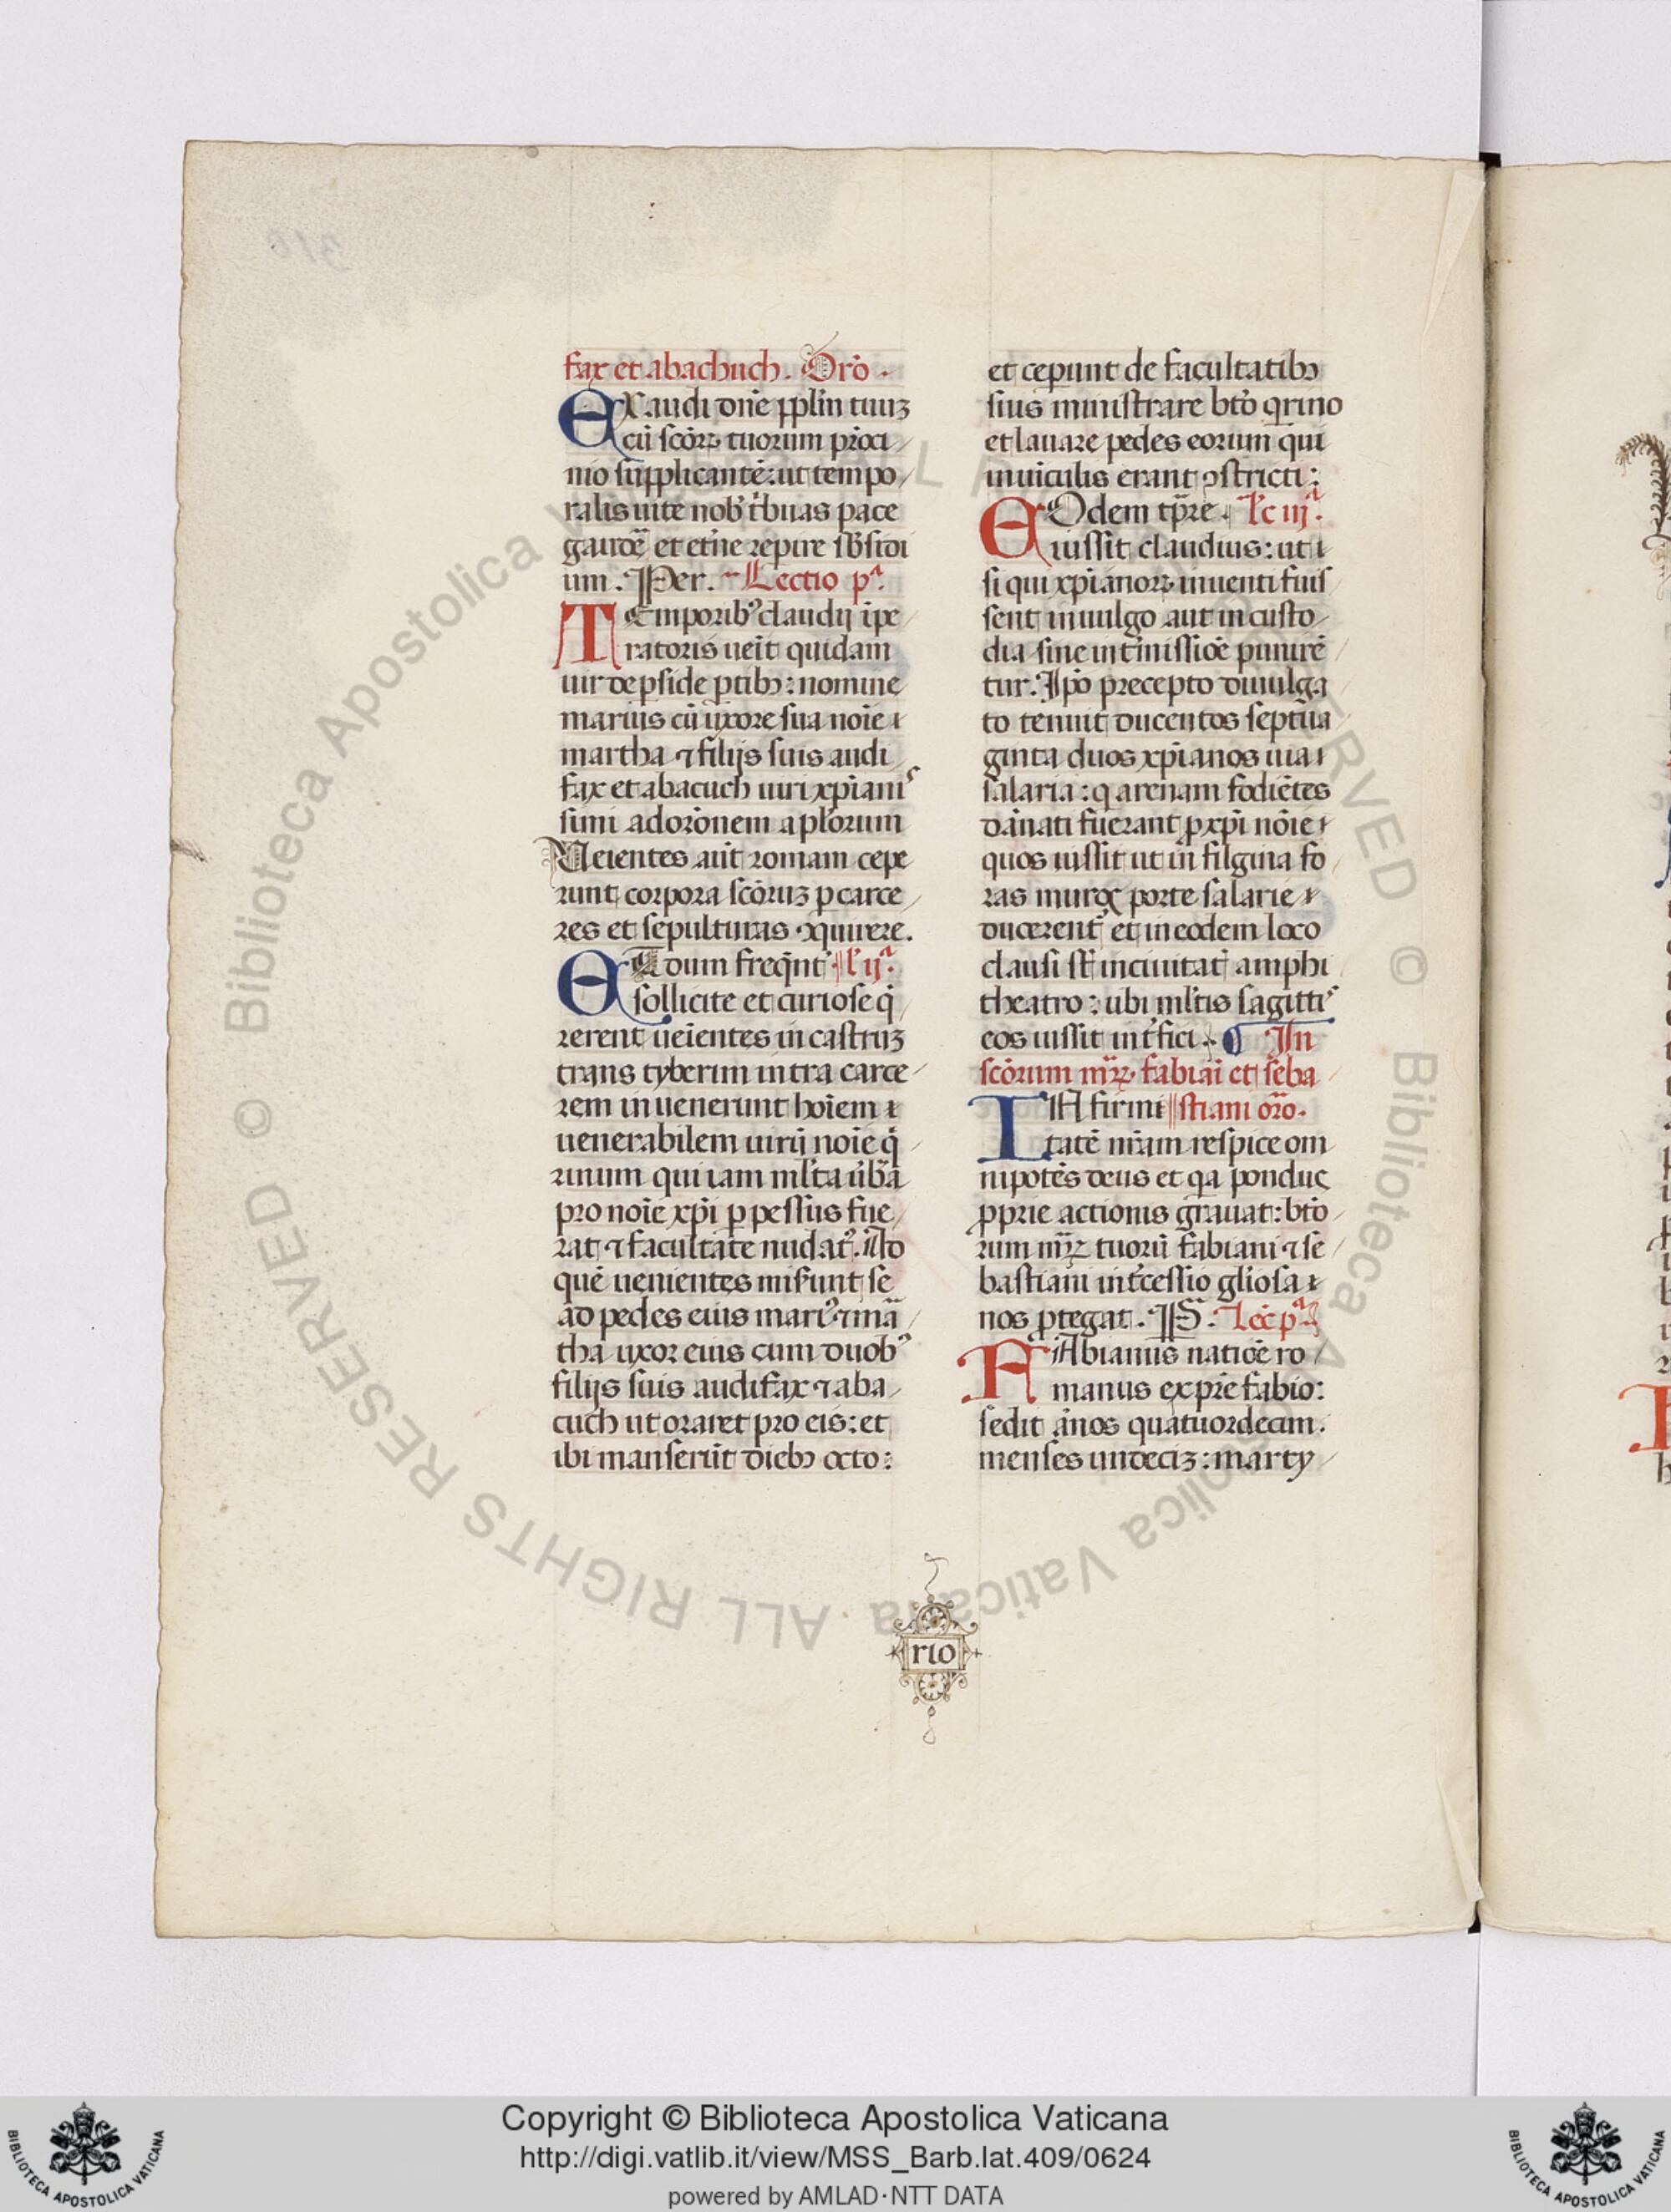 fax et abachuch. Oro̅.
EXaudi dn̅e pp̅lm̅ tuuꝫ
cu̅ sco̅rꝝ tuorum pr̅oci
nio supplicante̅: ut tempo
ralis uite nob̅ tͥbuas pace
gaude̅ et et̅ne repire sb̅sidi
um. Per. Lectio pᵃ.
TEmporibꝰ claudij i̅pe
ratoris ueit quidam
uir de ꝑside ꝑtibꝫ: nomine
marius cu̅ uxore sua noi̅e
martha ⁊ filijs suis audi
fax et abacuch uiri xp̅iani
simi ad oro̅nem apl̅orum
Ueientes aut̅ romam cepe
runt corpora sco̅ruꝫ ꝑ carce
res et sepulturas ꝯquirere.
ET dum freq̅nt̅ l̅ ijᵃ.
sollicite et curiose qͥ
rerent ueientes in castruꝫ
trans tyberim intra carce
rem inuenerunt hoi̅em
uenerabilem uiru̅ noi̅e qͥ
rinum qui iam ml̅ta u̅ba
pro noi̅e xp̅i ꝑpessus fue
rat ⁊ facultate nudatꝰ. Ad
que̅ uenientes miserunt se
ad pedes eius mariꝰ ⁊ ma̅
tha uxor eius cum duobꝰ
filijs suis audifax ⁊ aba
cuch ut oraret pro eis: et
ibi manseru̅t diebꝫ octo:
et cepunt de facultatibꝫ
suis ministrare bt̅o qͥrino
et lauare pedes eorum qui
in uiculis erant ꝯstricti:
EOdem tp̅re. l̅c iijᵃ.
iussit claudius: ut
si qui xp̅ianorꝝ inuenti fuis
sent in uulgo aut in custo
dia sine int̅missio̅e punire̅
tur. Ip̅o precepto diuulga
to tenuit ducentos septua
ginta duos xp̅ianos uia
salaria: q̅ arenam fodie̅tes
da̅nati fuerant ꝓ xp̅i noi̅e
quos iussit ut in filgina fo
ras muroꝝ porte salarie
ducerent̅ et in eodem loco
clausi st̅ in ciuitat̅ amphi
theatro: ubi ml̅tis sagittis
eos iussit int̅fici. ¶ In
sco̅rum mr̅ꝝ fabiai et seba
INfirmi stiani oro̅.
tate̅ nr̅am respice om
nipote̅s deus et qͥa pondus
ꝓprie actionis grauat: bt̅o
rum mr̅ꝝ tuoru̅ fabiani ⁊ se
bastiani int̅cessio gl̅iosa
nos ꝓtegat. P. Lec̅ pᵃ.
FAbianus natio̅e ro
manus ex pr̅e fabio:
sedit a̅nos quatuordecim.
menses undeciꝫ: marty
rio
© Biblioteca Apostolica Vaticana ALL RIGHTS RESERVED
Copyright © Biblioteca Apostolica Vaticana
http://digi.vatlib.it/view/MSS_Barb.lat.409/0624
powered by AMLAD·NTT DATA
BIBLIOTECA APOSTOLICA VATICANA
BIBLIOTECA APOSTOLICA VATICANA